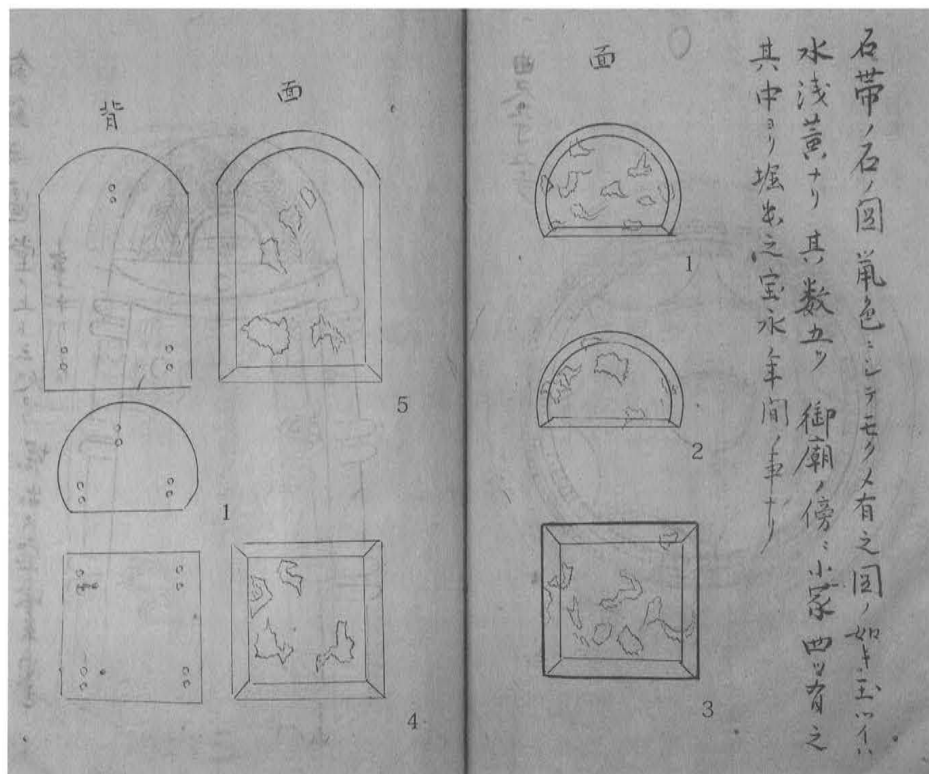 石帯ノ石ノ図 鼠色ニシテモクメ有之図ノ如キ
水浅黄ナリ 其数五ツ 御廟ノ傍ニ小冢四ツ有之
其中ヨリ堀出之宝永年間ノ事ナリ
面
1
2
3
面
背
5
1
4